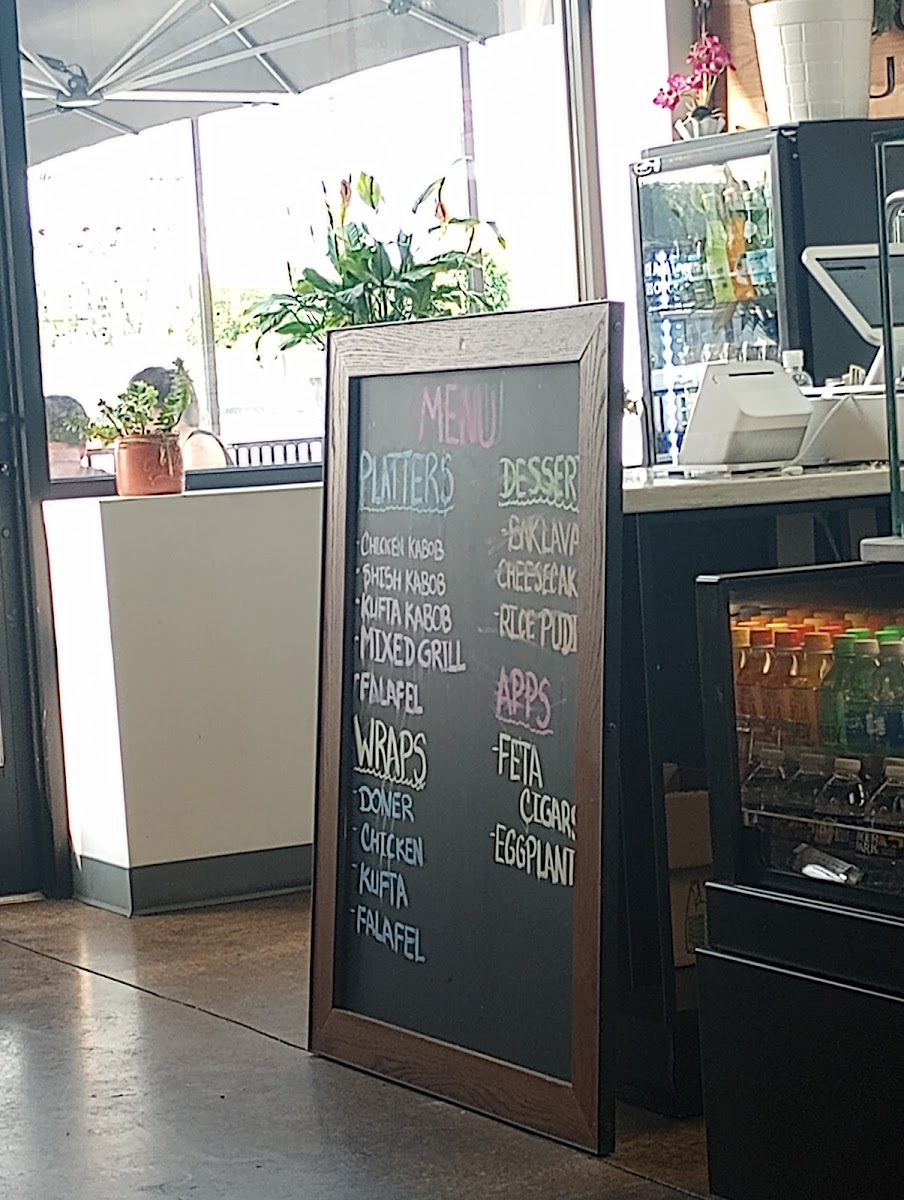 MENU
PLATTERS
-CHICKEN KABOB
-SHISH KABOB
-KUFTA KABOB
-MIXED GRILL
-FALAFEL
WRAPS
-DONER
-CHICKEN
-KUFTA
-FALAFEL
DESSER
-BAKLAVA
-CHEESECAK
-RICE PUDI
APPS
-FETA
CIGARS
-EGGPLANT
J